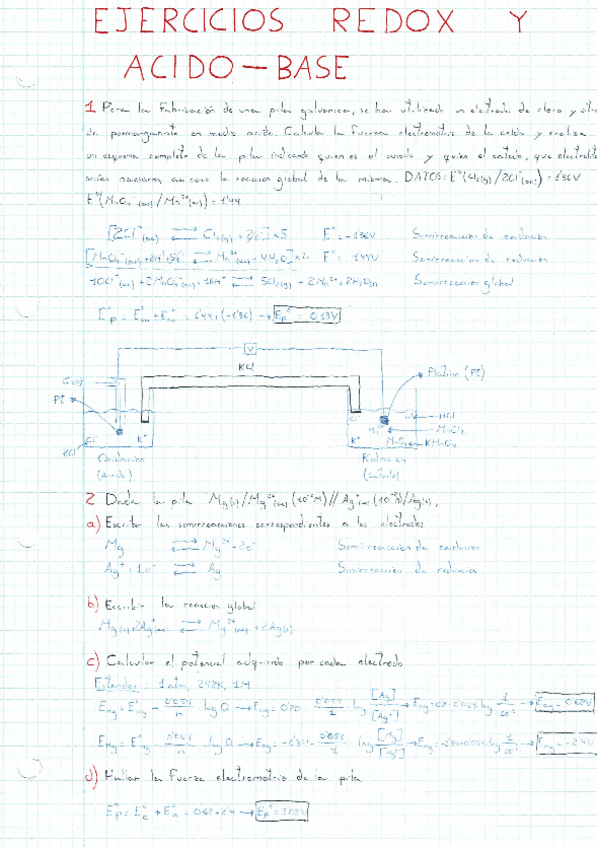 EJERCICIOS REDOX Y
ACIDO-BASE
1 Para la Fabricación de una pila galvanica, se han utilizado un electrodo de cloro y otro
de permanganato en medio acido. Calcula la Fuerza electromotriz de la celda y realiza
un esquema completo de la pila indicando quien es el anodo y quien el catodo, que electrolitos
serían necesarios, asi como la reaccion global de la misma. DATOS: E°(Cl2(g)/2Cl-(ac)) = 1'36V
E°(MnO4-(ac)/Mn2+(ac)) = 1'44
[2Cl-(ac) ⇄ Cl2(g) + 2e-]x5 E° = -1'36V Semirreaccion de oxidacion
[MnO4-(ac)+8H++5e- ⇄ Mn2+(ac) + 4H2O]x2 E° = 1'44V Semirreaccion de reduccion
10Cl-(ac) + 2MnO4-(ac) + 16H+ ⇄ 5Cl2(g) + 2Mn2+ + 8H2O Semirreaccion global
→ Ep° = 0'13V
V
KCl
Platino (Pt)
Pt
Cl-
K+
K+
HCl
MnCl2
KMnO4
Oxidacion
(Anodo)
Reduccion
(catodo)
2 Dada la pila Mg(s)/Mg2+(ac)(10-2M)//Ag+(ac)(10-2M)/Ag(s),
a) Escribir las semirreaciones correspondientes a los electrodos
Mg ⇄ Mg2+ + 2e- Semirreaccion de oxidacion
Ag+ + 1e- ⇄ Ag Semirreaccion de reduccion
b) Escribir la reaccion global
Mg(s)+2Ag+(ac) ⇄ Mg2+(ac) + 2Ag(s)
c) Calcular el potencial adquirido por cada electrodo
Estandar: 1atm, 298K, 1M
d) Hallar la Fuerza electromotriz de la pila
Ep = Ec° + Ea° = 0'68+2'4 → Ep° = 3'08V